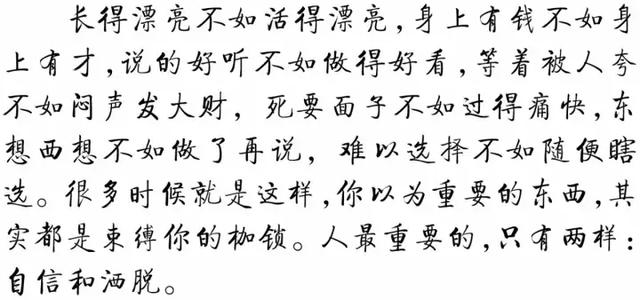 长得漂亮不如活得漂亮,身上有钱不如身
上有才,说的好听不如做得好看,等着被人夸
不如闷声发大财，死要面子不如过得痛快,东
想西想不如做了再说，难以选择不如随便瞎
选。很多时候就是这样,你以为重要的东西,其
实都是束缚你的枷锁。人最重要的,只有两样：
自信和洒脱。